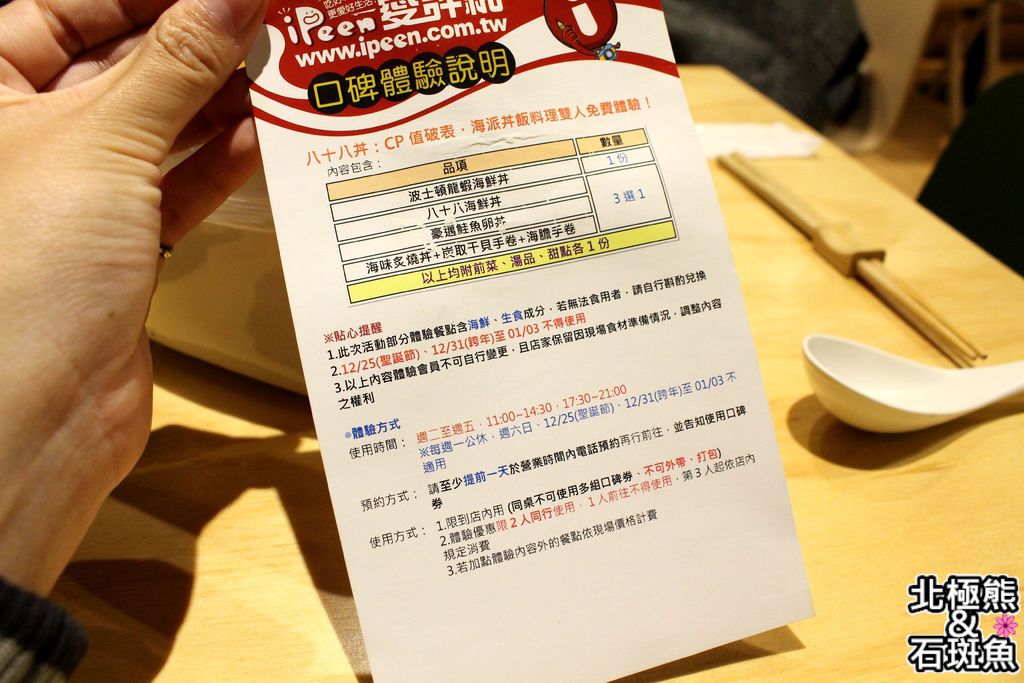 更愛好生活
iPeen愛評網
www.ipeen.com.tw
口碑體驗說明
八十八丼：CP 值破表，海派丼飯料理雙人免費體驗！
內容包含：
品項 數量
波士頓龍蝦海鮮丼 1 份
八十八海鮮丼 3 選 1
豪邁鮭魚卵丼
海味炙燒丼+炭取干貝手卷+海膽手卷
以上均附前菜、湯品、甜點各 1 份
※貼心提醒
1.此次活動部分體驗餐點含海鮮、生食成分，若無法食用者，請自行斟酌兌換
2.12/25(聖誕節)、12/31(跨年)至 01/03 不得使用
3.以上內容體驗會員不可自行變更，且店家保留因現場食材準備情況，調整內容
之權利
體驗方式
使用時間： 週二至週五，11:00~14:30，17:30~21:00
※每週一公休，週六日、12/25(聖誕節)、12/31(跨年)至 01/03 不
適用
預約方式： 請至少提前一天於營業時間內電話預約再行前往，並告知使用口碑
券
使用方式： 1.限到店內用 (同桌不可使用多組口碑券、不可外帶、打包)
2.體驗優惠限 2 人同行使用，1 人前往不得使用，第 3 人起依店內
規定消費
3.若加點體驗內容外的餐點依現場價格計費
北極熊
&
石斑魚